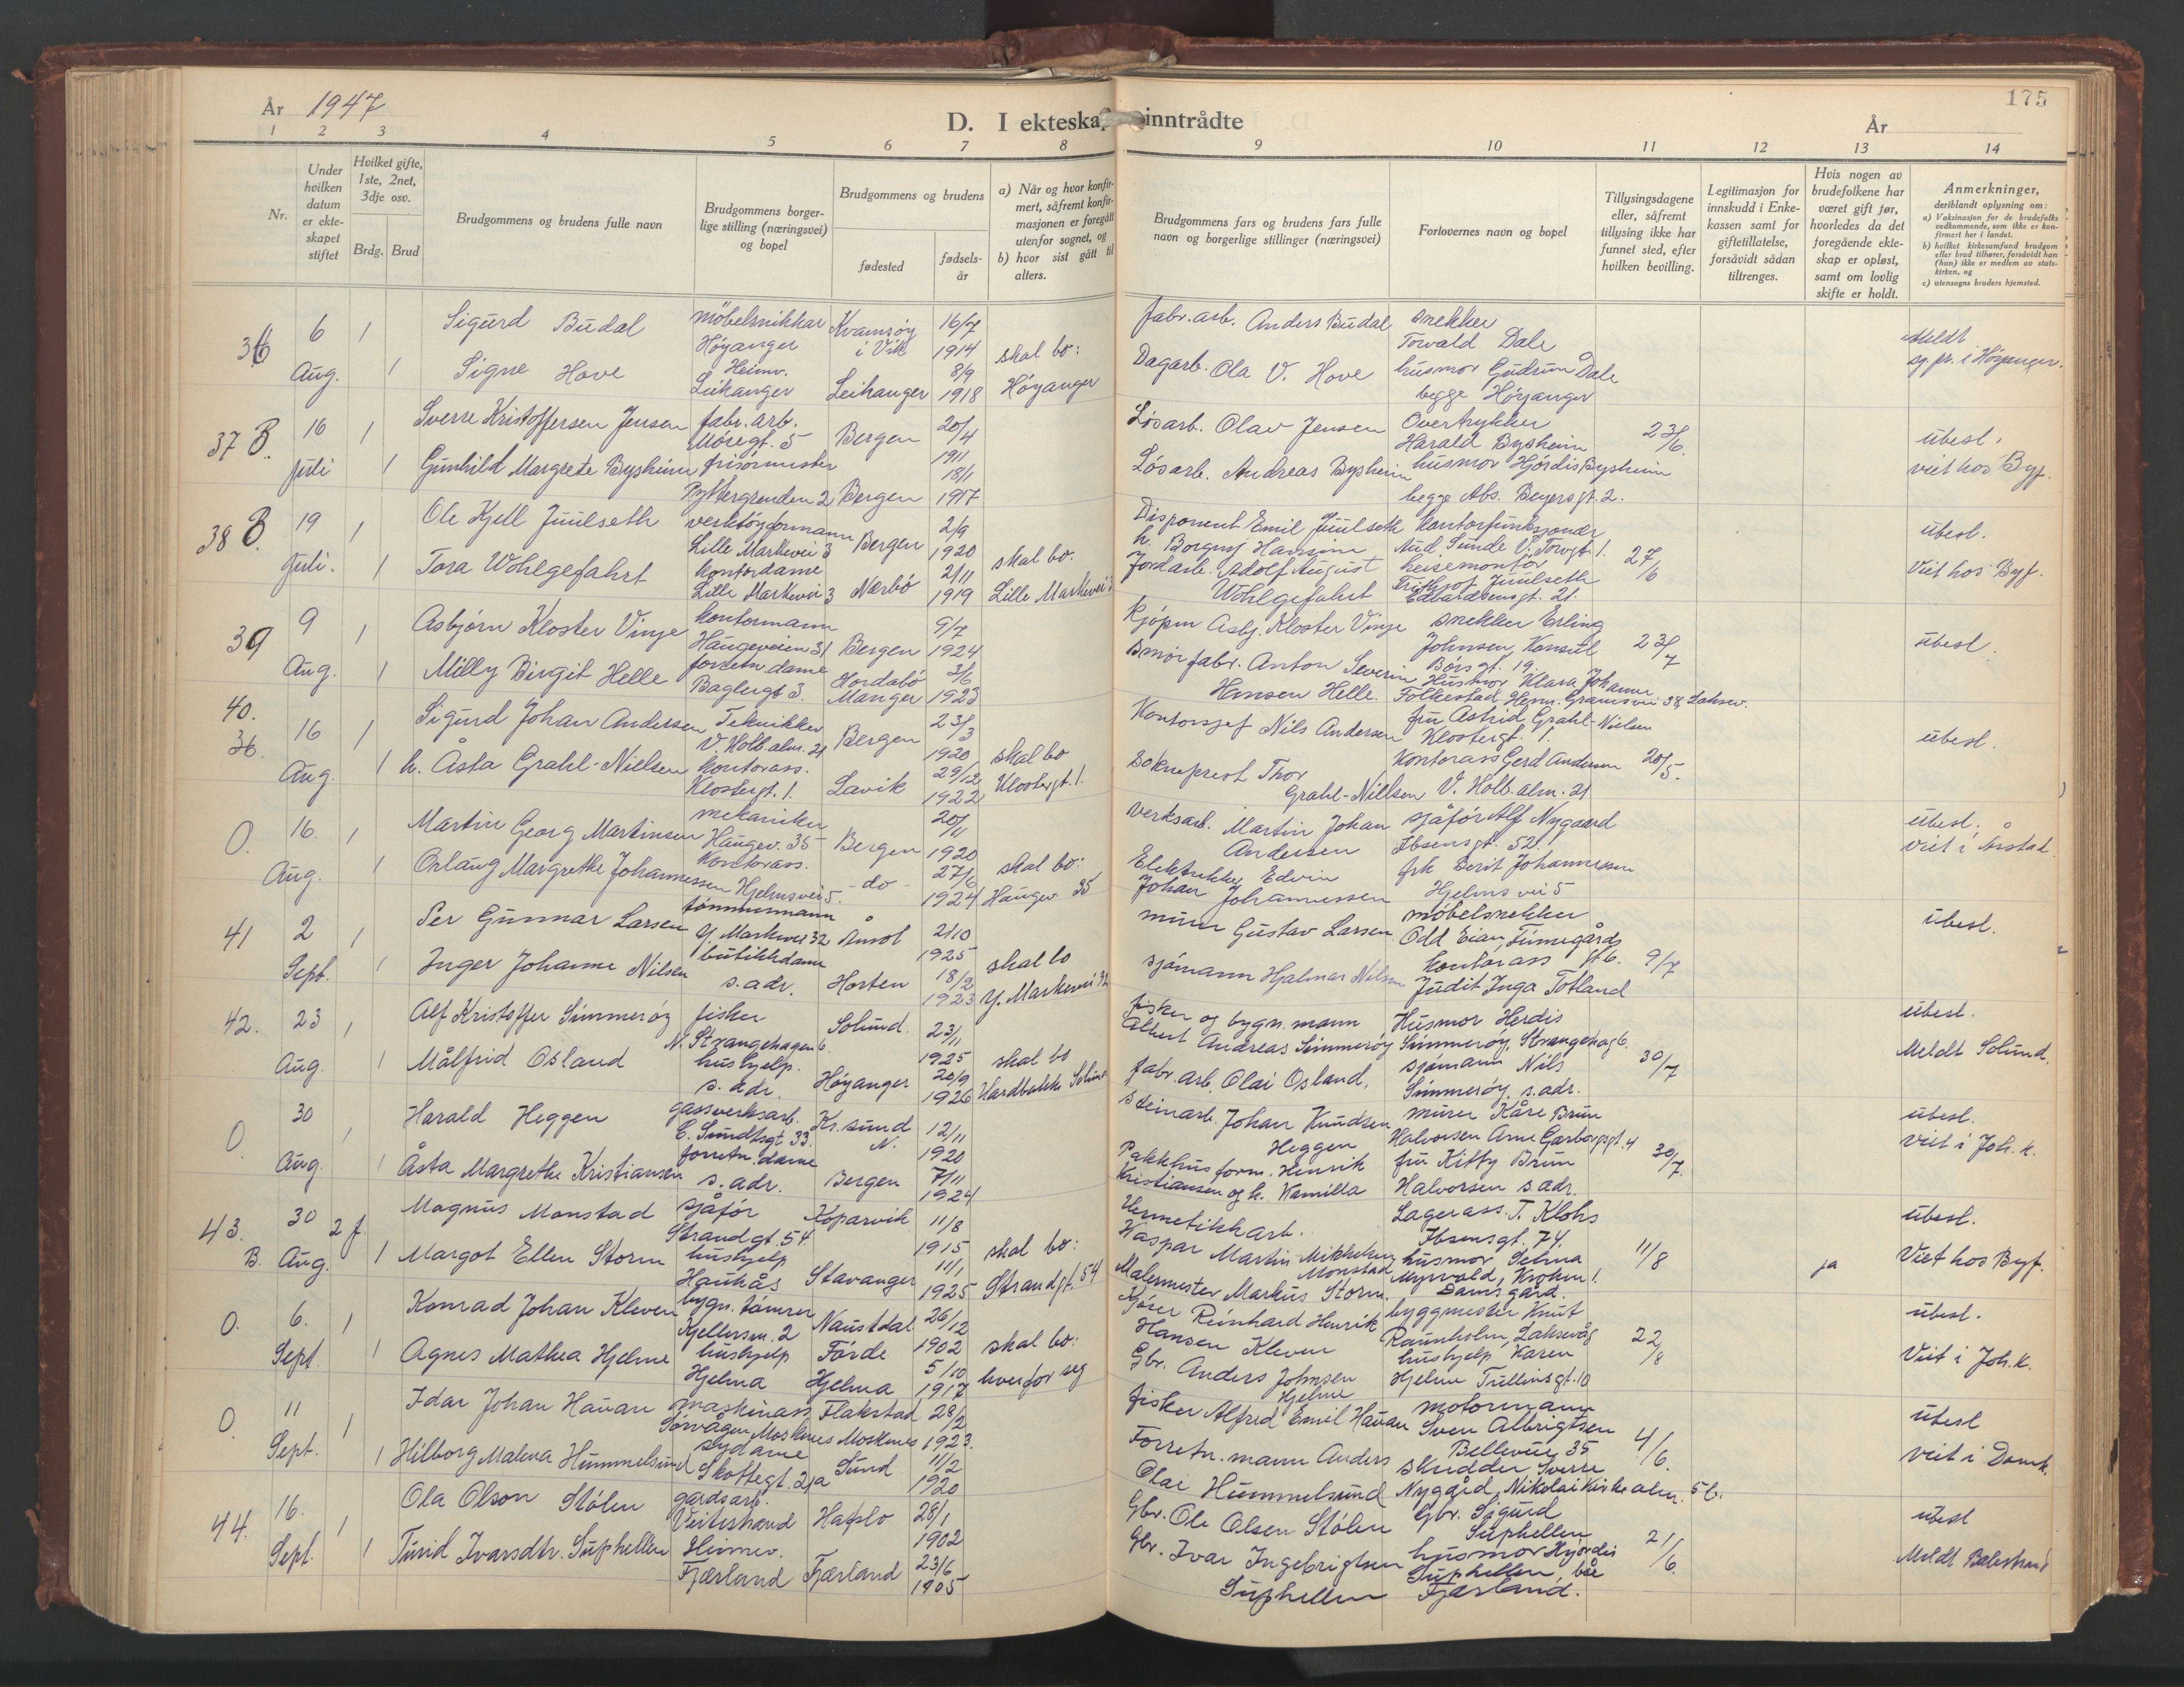 År 1947
D. I ekteska inntrådte
175
År
1 2 3 4 5 6 7 8 9 10 11 12 13 14
Nr.
Under hvilken datum er ekteskapet stiftet
Hvilket gifte, 1ste, 2net, 3dje osv.
Brdg. Brud
Brudgommens og brudens fulle navn
Brudgommens borgerlige stilling (næringsvei) og bopel
Brudgommens og brudens
fødested
fødselsår
a) Når og hvor konfirmert, såfremt konfirmasjonen er foregått utenfor sognet, og
b) hvor sist gått til alters.
Brudgommens fars og brudens fars fulle navn og borgerlige stillinger (næringsvei)
Forlovernes navn og bopel
Tillysingsdagene eller, såfremt tillysing ikke har funnet sted, efter hvilken bevilling.
Legitimasjon for innskudd i Enkekassen samt for giftetillatelse, forsåvidt sådan tiltrenges.
Hvis nogen av brudefolkene har været gift før, hvorledes da det foregående ekteskap er opløst, samt om lovlig skifte er holdt.
Anmerkninger, deriblandt oplysning om:
a) Vaksinasjon for de brudefolks vedkommende, som ikke er konfirmert her i landet.
b) hvilket kirkesamfund brudgom eller brud tilhører, forsåvidt han (hun) ikke er medlem av statskirken, og
c) utensogns bruders hjemsted.
36 6 Aug. 1 Sigurd Budal møbelsnikkar Høyanger Kvamsøy i Vik 16/7 1914 skal bo: Høyanger
fabr.arb. Anders Budal snekker Torvald Dale
1 Signe Hove Heimv. Leikanger Leikanger 8/9 1918
Dagarb. Ola V. Hove husmor Gudrun Dale begge Høyanger
Meldt sg.pr. i Høyanger.
37 B. 16 Juli 1 Sverre Kristoffersen Jensen fabr.arb. Møregt. 5 Bergen 20/4 1911
Løsarb. Olav Jensen Overtrykker Harald Bysheim 23/6.
1 Gunhild Margrete Bysheim frisørmester Pyttergrenden 2 Bergen 18/1 1917
Løsarb. Andreas Bysheim husmor Hjördis Bysheim begge Abs. Beyersgt. 2.
ubesl. viet hos Byf.
38 B. 19 Juli. 1 Ole Kjell Juulseth verktøyformann Lille Markevei 3 Bergen 2/9 1920 skal bo: Lille Markevei 3
Disponent Emil Juulseth kontorfunksjonær Aud Sunde V. Torvgt. 1. 27/6
1 Tora Wohlgefahrt kontordame Lille Markevei 3 Nærbø 2/11 1919
Jordarb. Adolf August Wohlgefahrt heisemontør Frithjof Juulseth Edvardsensgt. 21.
ubesl. Viet hos Byf.
39 9 Aug. 1 Asbjørn Kloster Vinje kontormann Haugeveien 31 Bergen 9/7 1924
Kjøpm Asbj. Kloster Vinje snekker Erling Johnsen, Konsul Børsgt. 19. 23/7
1 Milly Birgit Helle forretn.dame Baglergt 3. Hordabø Manger 3/6 1923
Smørfabr. Anton Severin Hansen Helle. Husmor Klara Johanne Folkestad Herm. Gramsvei 38, Laksev.
ubesl.
40. 36. 16 Aug. 1 Sigurd Johan Andersen Tekniker V. Holb.alm. 21 Bergen 23/3 1920 skal bo Klostergt. 1.
Kontorsjef Nils Andersen fru Astrid Grahl-Nielsen Klostergt. 1. 20/5.
1 h. Åsta Grahl-Nielsen kontorass. Klostergt. 1. Lavik 29/12 1922
Sokneprest Thor Grahl-Nielsen Kontorass Gerd Andersen V. Holb.alm. 21
ubesl.
0. 16. Aug. 1 Martin Georg Martinsen mekaniker Haugev. 35 Bergen 20/11 1920 skal bo: Haugev 35
Verksarb. Martin Johan Andersen sjåfør Alf Nygaard Ibsensgt. 52.
1 Orlaug Margrethe Johannessen Kontorass. Hjelmsvei 5. - do - 27/6 1924
Elektriker Edvin Johan Johannessen frk Berit Johannessen Hjelms vei 5
ubesl. viet i Årstad
41 2 Sept. 1 Per Gunnar Larsen tømmermann Y. Markevei 32 2/10 1925 skal bo Y. Markevei 32
murer Gustav Larsen møbelsnekker Odd Eian, Finnegårds gt 6. 9/7
1 Inger Johanne Nilsen butikkdame s. adr. Horten 18/2 1923
sjømann Hjalmar Nilsen kontorass Judit Inga Totland
ubesl.
42. 23 Aug. 1 Alf Kristoffer Simmerøy fisker N. Strangehagen 6. Solund. 23/11 1925 skal bo Hardbakke Solund
fisker og bygn.mann Albert Andreas Simmerøy Husmor Herdis Simmerøy, Strangehag 6. 30/7
1 Målfrid Osland hushjelp. s. adr. Høyanger 20/9 1926
fabr.arb. Olai Osland. sjømann Nils Simmerøy, s.adr.
ubesl. Meldt Solund.
0. 30 Aug. 1 Harald Heggen gassverksarb. E. Sundtsgt 33. Kr.sund N. 12/11 1920
steinarb. Johan Knudsen Heggen murer Kåre Brun Halvorsen Arne Garborgsgt. 4 30/7.
1 Åsta Margrethe Kristiansen forretn. dame s. adr. Bergen 7/11 1924
Pakkhusform. Henrik Kristiansen og h. Kamilla fru Kitty Brun Halvorsen s.adr.
ubesl. viet i Joh.k.
43. B. 30 Aug. 2 f. Magnus Monstad sjåfør Strandgt. 54. Kopervik 11/8 1915 skal bo: Strandgt. 54
Hermetikkarb. Kaspar Martin Mikkelsen Monstad Lagerass. T. Klohs Ibsensgt. 74. 11/8 ja
1 Margot Ellen Storm hushjelp Haukås Stavanger 11/1 1925
Malermester Markus Storm. husmor Selma Myrvold, Kroken 1. Damsgård.
ubesl. Viet hos Byf.
0. 6. Sept. 1 Konrad Johan Kleven bygn. tømrer Kjellersm. 2 Naustdal Førde 26/12 1902 skal bo: hver for seg
Reinhard Henrik Hansen Kleven byggmester Knut Raunholm, Laksevåg 22/8
1 Agnes Mathea Hjelme hushjelp Hjelma Hjelma 5/10 1917
Gbr. Anders Johnsen Hjelme hushjelp Karen Hjelme Tullinsgt. 10
ubesl. Viet i Joh.k.
0. 11 Sept. 1 Idar Johan Hauan maskinass Sørvågen Moskenes Flakstad Moskenes 28/2 1923.
fisker Alfred Emil Hauan motormann Sven Albrigtsen Bellevue 35 4/6.
1 Hilborg Malena Hummelsund sydame Skottegt. 21a Sund 11/2 1920
Forretn.mann Anders Olai Hummelsund skudder Sverre Nygård, Nikolaikirkealm. 5 b.
ubesl viet i Domk.
44. 16. Sept. 1 Ola Olson Stølen gardsarb. Veitestrand Hafslo 28/1 1902
Gbr. Ole Olsen Stølen Gbr. Sigurd Suphellen 21/6.
1 Turid Ivarsdtr. Suphellen Heimev. Fjærland Fjærland 23/6 1905
Gbr. Ivar Ingebrigtsen Suphellen husmor Hjørdis Suphellen, bæ Fjærland.
ubesl Meldt Balestrand